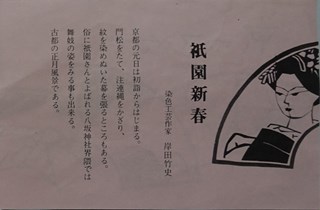 祇園新春
染色工芸作家　岸田竹史
京都の元日は初詣からはじまる。
門松をたて、注連縄をかざり、
紋を染めぬいた幕を張るところもある。
俗に祇園さんとよばれる八坂神社界隈では
舞妓の姿をみる事も出来る。
古都の正月風景である。